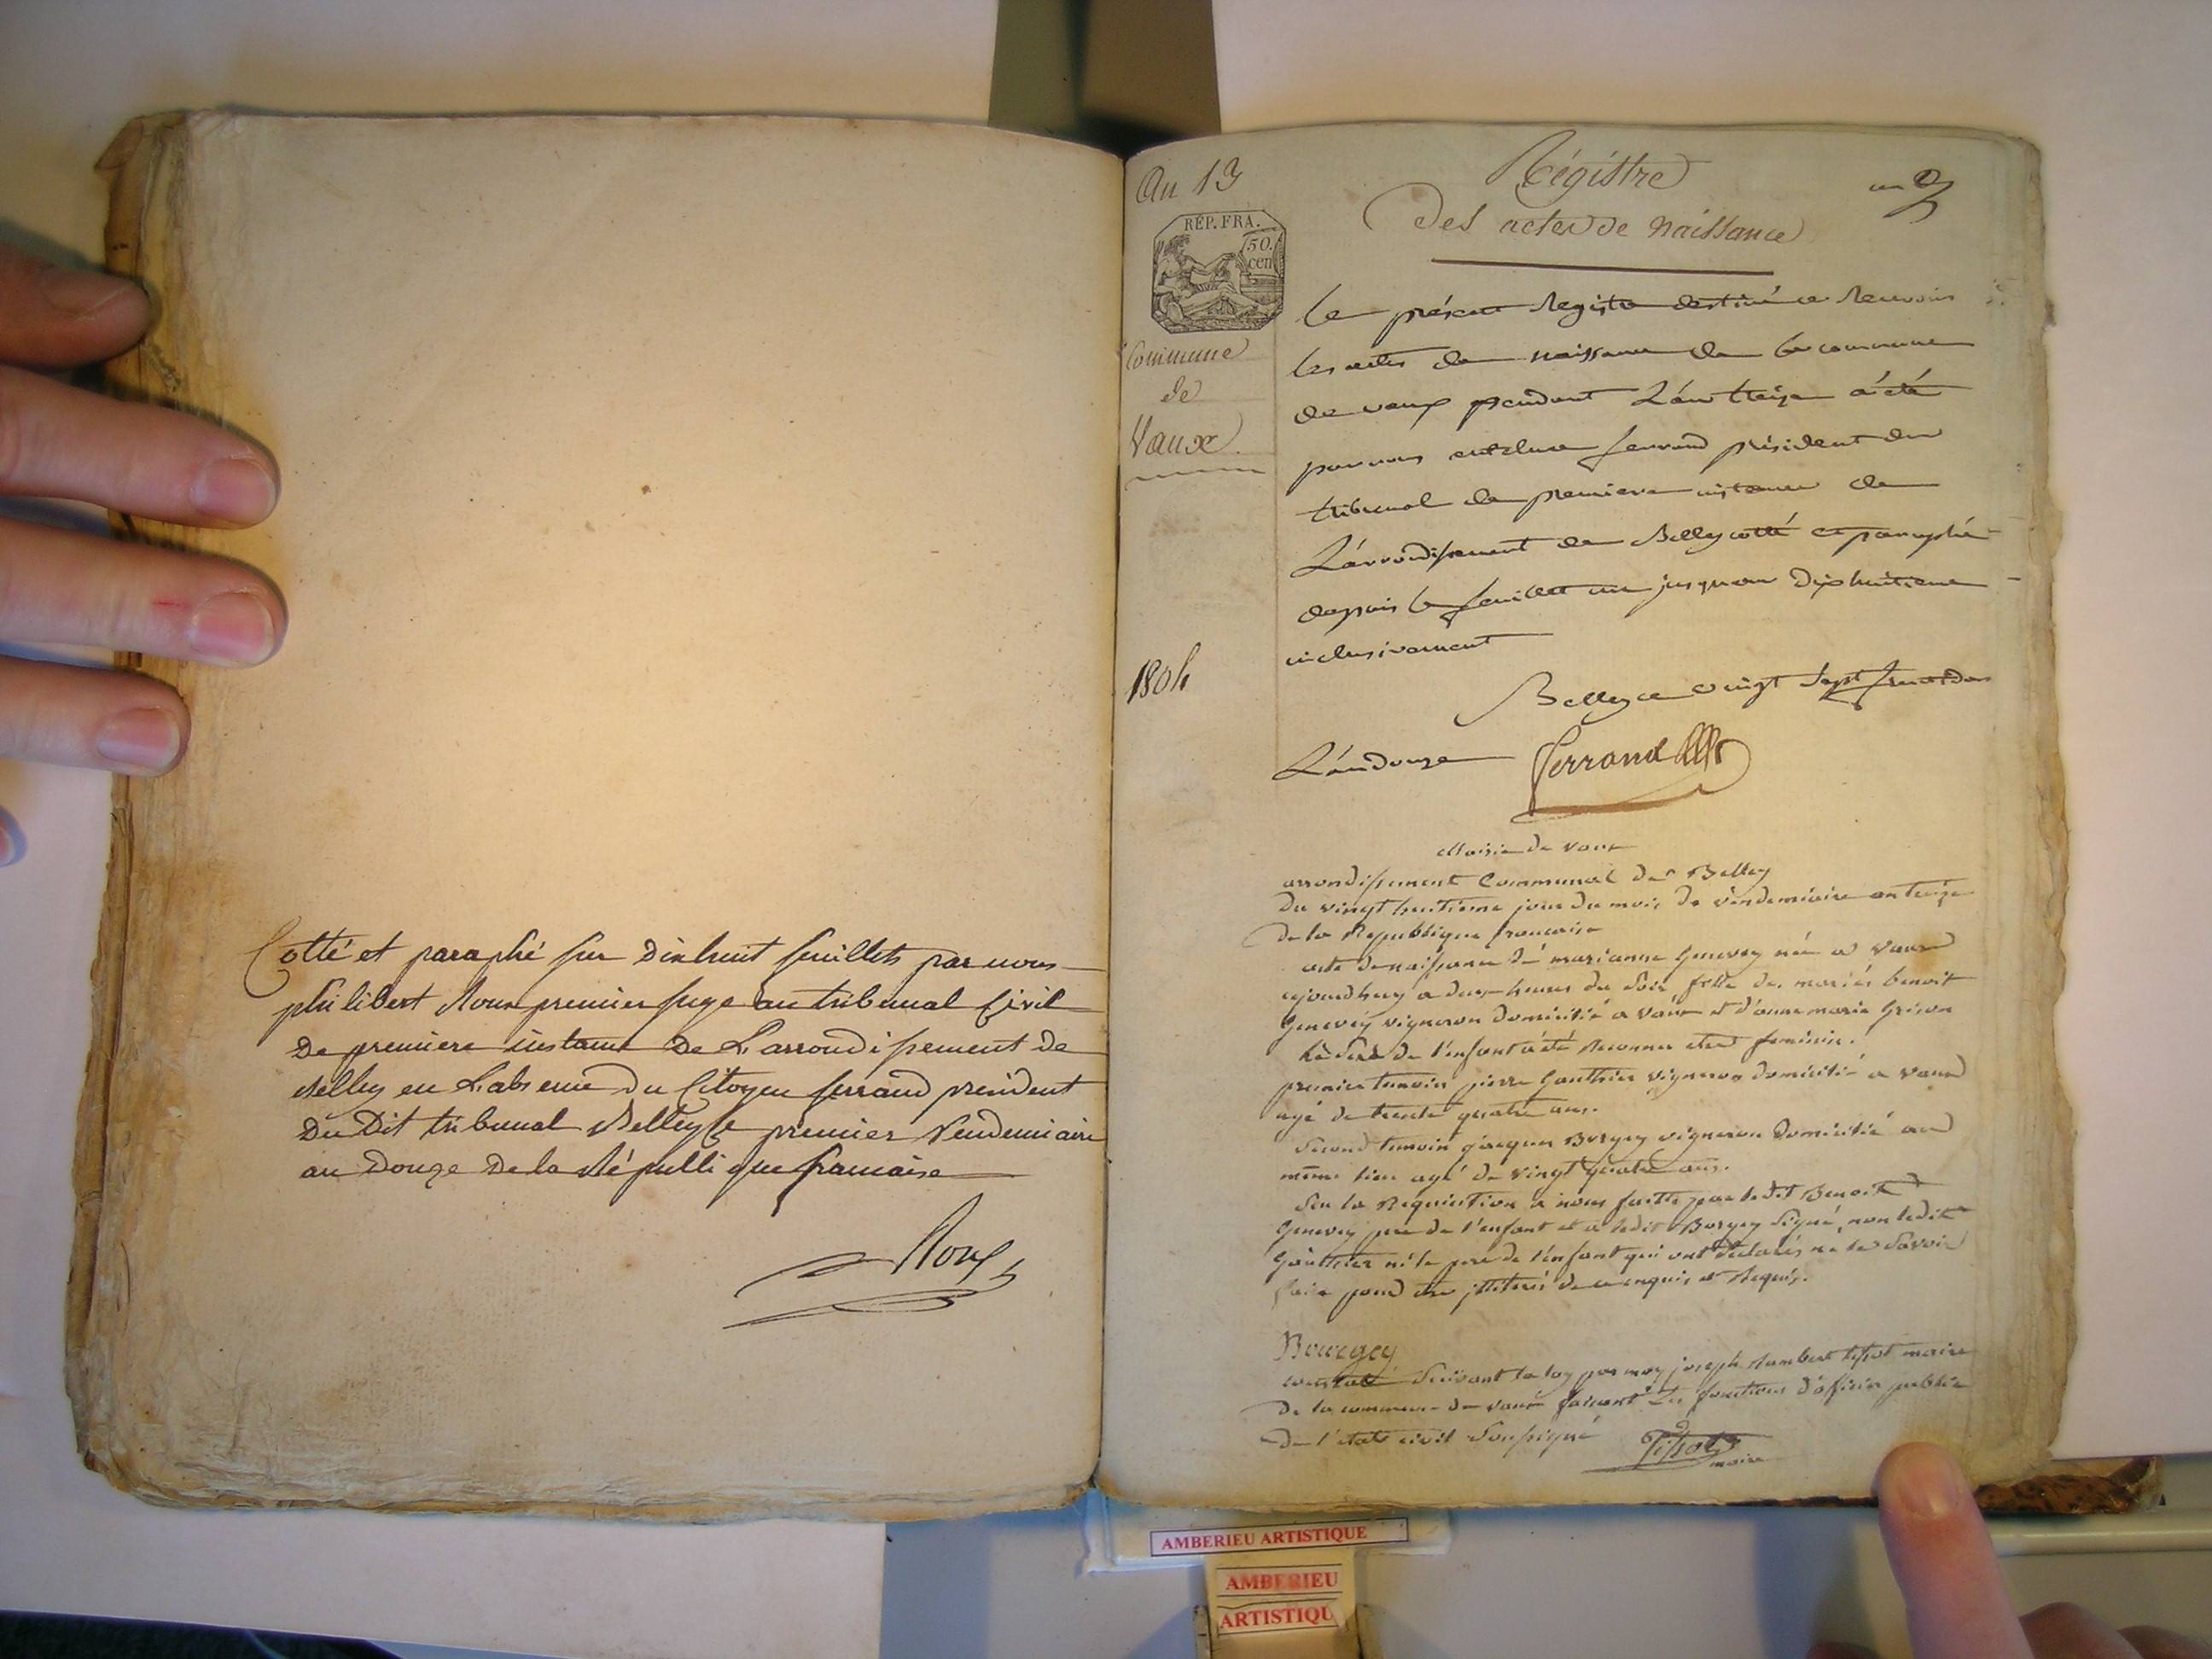 Cotté et paraphé sur dixhuit feuillets par nous
philibert Roux premier juge au tribunal Civil
De premiere instance De L'arrondissement de
Belley en L'absence Du Citoyen ferrand president
Du Dit tribunal Belley le premier Vendemiaire
an Douze De la République francaise
Roux
An 13
RÉP. FRA.
50.
cen
Commune
de
Vaux
1804
Régistre
des actes de naissance
un
Le présent Registre destiné a Recevoir
les actes de naissance de la commune
de vaux pendant L'an treize a été
par nous anthelme ferrand président du
tribunal de premiere instance de
L'arrondissement de Belley cotté et paraphé
depuis le feuillet un jusqu'au dixhuitieme
inclusivement
Belley ce vingt sept
L'an douze Ferrand
Mairie de vaux
arrondissement Communal de Belley
Du vingt huitieme jour du mois de vendemiaire an treize
De la Republique francaise
acte de naissance de marianne Genevey née a vaux
ajourdhuy a deux heures du soir fille des mariés benoit
Genevey vigneron domicilié a vaux et d'anne marie Grison
le sexe de l'enfant a été reconnu etre feminin.
premier temoin pierre Gauthier vigneron domicilié a vaux
agé de trente quatre ans.
second temoin jacques Borgey vigneron domicilié au
même lieu agé de vingt quatre ans.
Sur la Requisition a nous faitte par ledit Benoit
Genevey pere de l'enfant et a ledit Borgey signé, non ledit
Gauthier ni le pere de l'enfant qui ont déclarés ne le savoir
faire pour etre de ce enquis et Requis.
Bourgey
constaté Suivant la loy par moy joseph Rambert tissot maire
De la commune de vaux faisant les fonctions d'officier public
De l'etat civil soussigné Tissot
maire
AMBERIEU ARTISTIQUE
AMBERIEU
ARTISTIQU